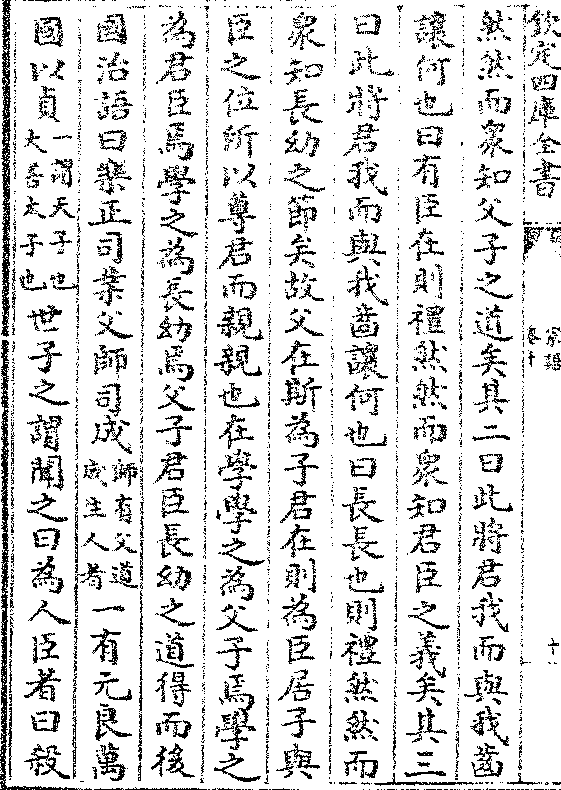 欽定四庫全書
家語
卷十
然然而衆知父子之道矣其二曰此將君我而與我齒
讓何也曰有臣在則禮然然而衆知君臣之義矣其三
曰此將君我而與我齒讓何也曰長長也則禮然然而
衆知長幼之節矣故父在斯為子君在則為臣居子與
臣之位所以尊君而親親也在學學之為父子焉學之
為君臣焉學之為長幼焉父子君臣長幼之道得而後
國治語曰樂正司業父師司成師有父道成主人者一有元良萬
國以貞一謂天子也大善太子也世子之謂聞之曰為人臣者曰殺